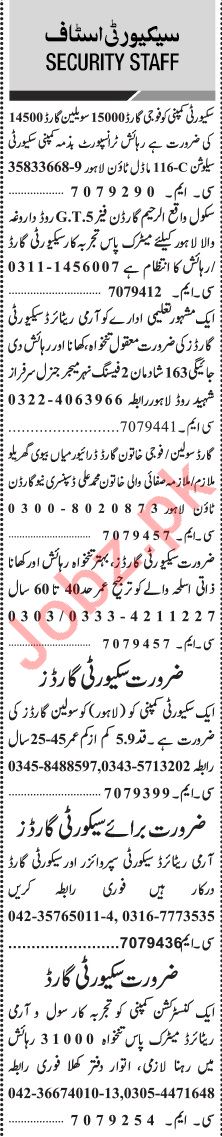 سیکیورٹی اسٹاف
SECURITY STAFF
سکیورٹی کمپنی کو فوجی گارڈ 15000 سویلین گارڈ 14500
کی ضرورت ہے رہائش ٹرانسپورٹ بذمہ کمپنی سکیورٹی
سلوشن 116-C ماڈل ٹاؤن لاہور 9-35833668
سی۔ایم۔ 7079290
سکول واقع الرحیم گارڈن فیز 5 G.T. روڈ داروغہ
والا لاہور کیلئے میٹرک پاس تجربہ کار سکیورٹی گارڈ
/رہائش کا انتظام ہے 0311-1456007
سی۔ایم۔ 7079412
ایک مشہور تعلیمی ادارے کو آرمی ریٹائرڈ سیکیورٹی
گارڈز کی ضرورت معقول تنخواہ، کھانا اور رہائش دی
جائیگی 163 شادمان 2 فیسنگ نہر میجر جنرل سرفراز
شہید روڈ لاہور رابطہ 0322-4063966
سی۔ایم۔ 7079441
گارڈ سولین/ فوجی خاتون گارڈ ڈرائیور میاں بیوی گھریلو
ملازم/ملازمہ صفائی والی خاتون محمد علی ڈسپنسری نیو گارڈن
ٹاؤن لاہور 0300-8020873
سی۔ایم۔ 7079457
ضرورت سکیورٹی گارڈز، بہتر تنخواہ رہائش اور کھانا
ذاتی اسلحہ والے کو ترجیح عمر حد 40 تا 60 سال
0303/0333-4211227
سی۔ایم۔ 7079457
ضرورت سکیورٹی گارڈز
ایک سکیورٹی کمپنی کو (لاہور) کو سولین گارڈز کی
ضرورت ہے۔ قد 5.9 کم از کم عمر 45-25 سال
رابطہ 0343-5713202, 0345-8488597
سی۔ایم۔ 7079399
ضرورت برائے سیکورٹی گارڈز
آرمی ریٹائرڈ سیکورٹی سپروائزر اور سیکورٹی گارڈ
درکار ہیں فوری رابطہ کریں
042-35765011-4, 0316-7773535
سی۔ایم۔ 7079436
ضرورت سکیورٹی گارڈ
ایک کنسٹرکشن کمپنی کو تجربہ کار سول و آرمی
ریٹائرڈ میٹرک پاس تنخواہ 31000 رہائش
میں رہنا لازمی، اتوار دفتر کھلا فوری رابطہ
042-36674010-13,0305-4471648
سی۔ایم۔ 7079254
Jobz.pk